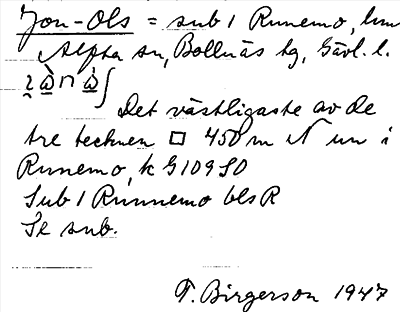 Jon-Ols = sub 1 Runemo, hmn
Alfta sn, Bollnäs tg, Gävl. l.
Det västligaste av de
tre tecknen □ 450 m N un i
Runemo, k G109SO
Sub 1 Runnemo blsR
Se sub.
T. Birgerson 1947